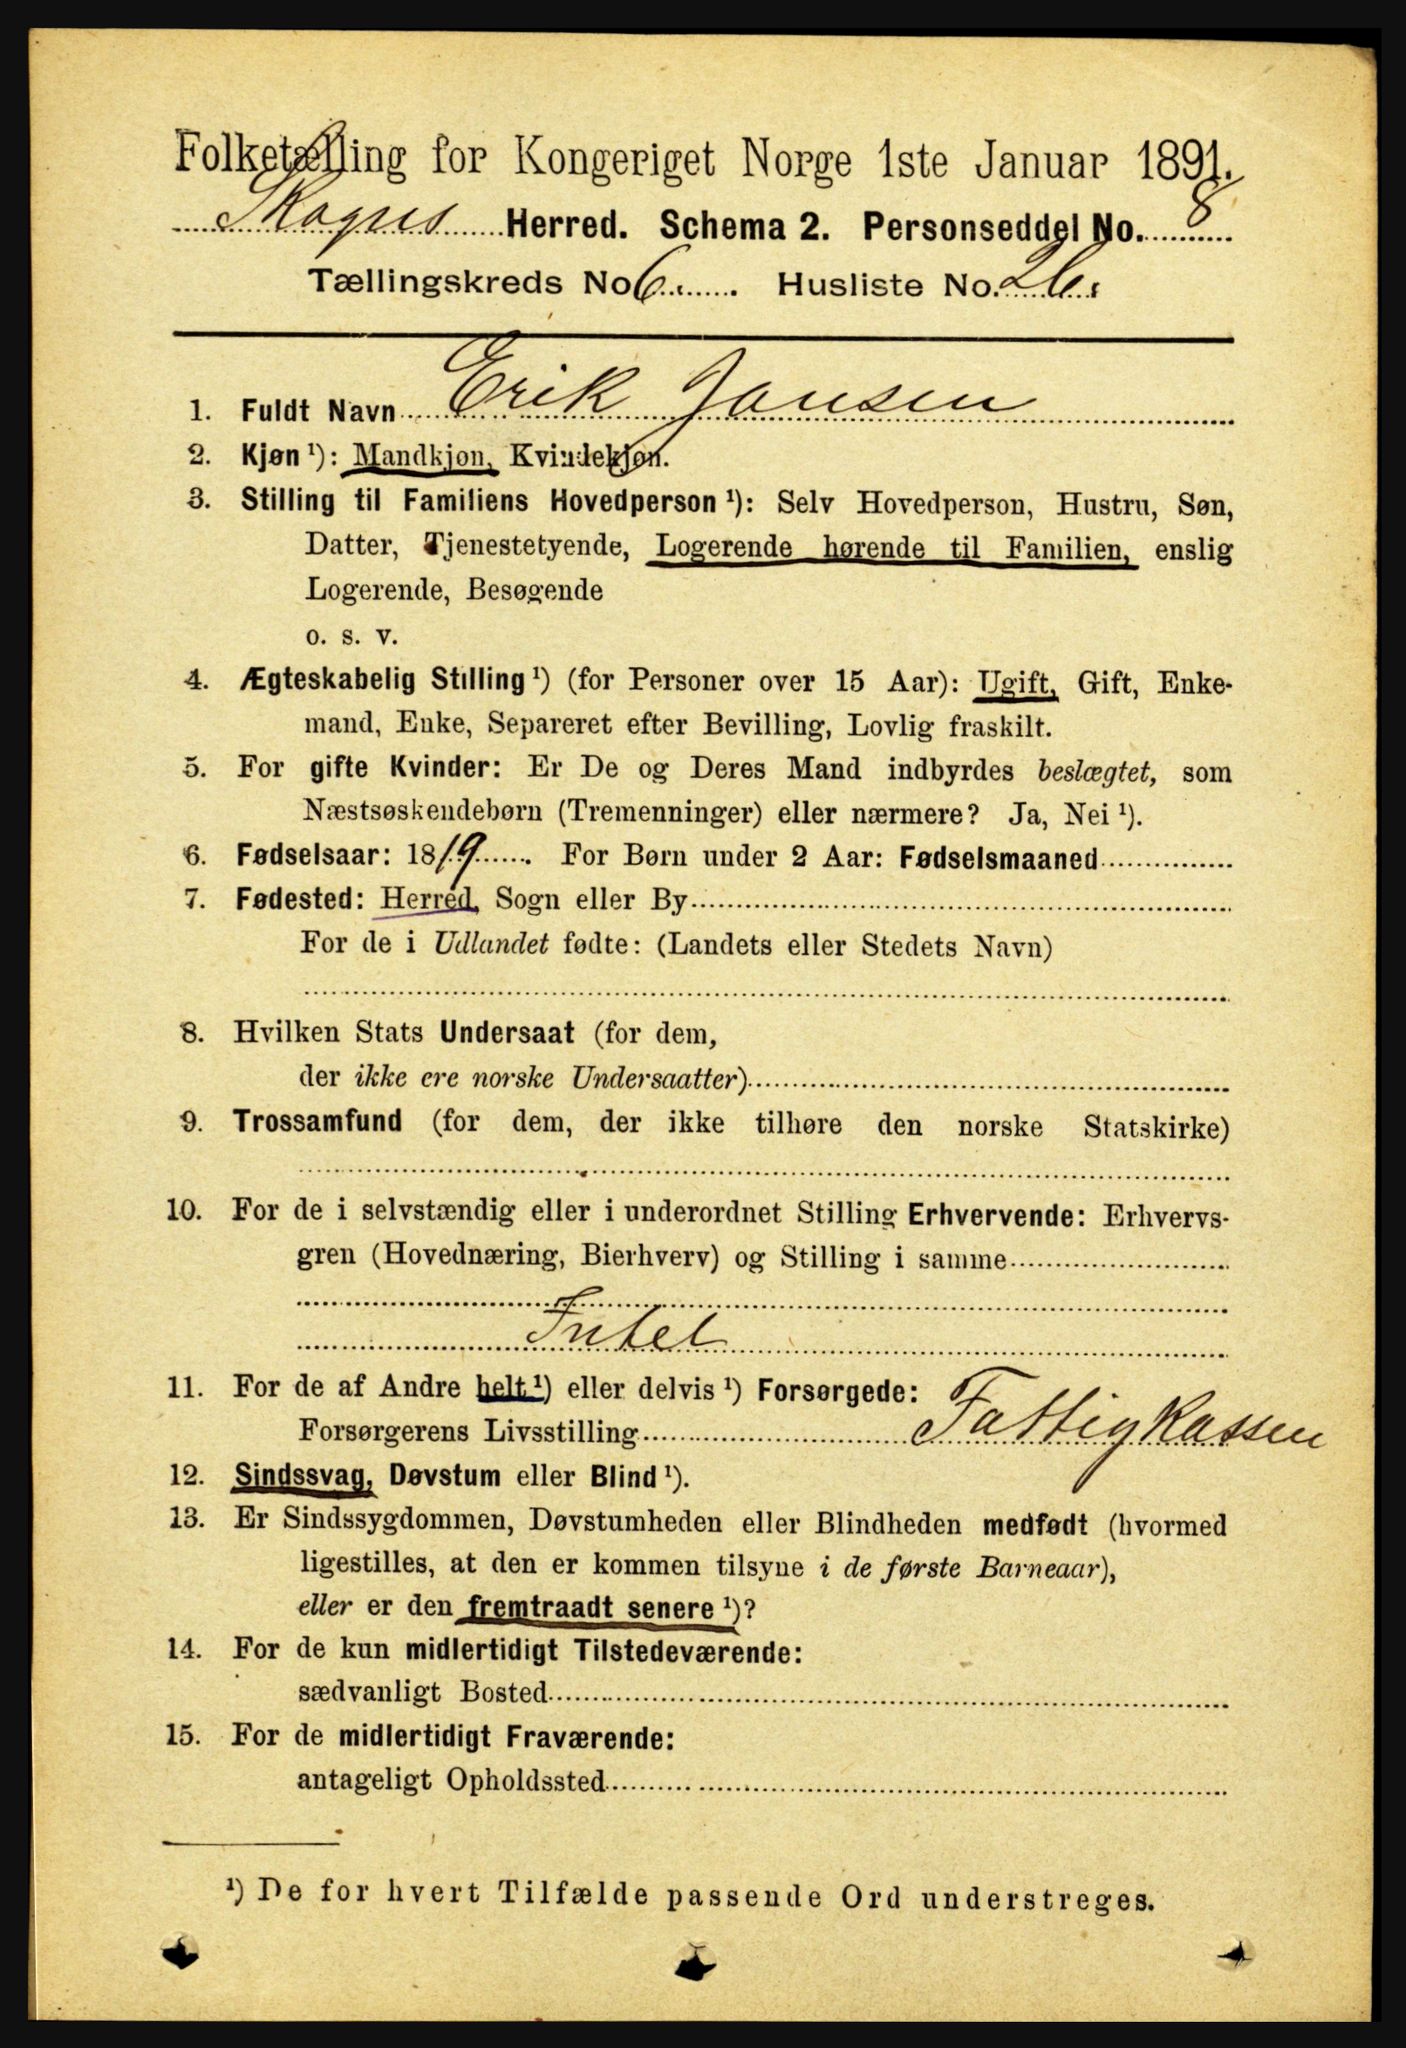 Folketælling for Kongeriget Norge 1ste Januar 1891.
Skogns Herred. Schema 2. Personseddel No. 8
Tællingskreds No 6. Husliste No. 26.
1. Fuldt Navn Erik Jansen
2. Kjøn ¹): Mandkjøn, Kvindekjøn.
3. Stilling til Familiens Hovedperson ¹): Selv Hovedperson, Hustru, Søn,
Datter, Tjenestetyende, Logerende hørende til Familien, enslig
Logerende, Besøgende
o. s. v.
4. Ægteskabelig Stilling ¹) (for Personer over 15 Aar): Ugift, Gift, Enke-
mand, Enke, Separeret efter Bevilling, Lovlig fraskilt.
5. For gifte Kvinder: Er De og Deres Mand indbyrdes beslægtet, som
Næstsøskendebørn (Tremenninger) eller nærmere? Ja, Nei ¹).
6. Fødselsaar: 1819. For Børn under 2 Aar: Fødselsmaaned
7. Fødested: Herred, Sogn eller By
For de i Udlandet fødte: (Landets eller Stedets Navn)
8. Hvilken Stats Undersaat (for dem,
der ikke ere norske Undersaatter)
9. Trossamfund (for dem, der ikke tilhøre den norske Statskirke)
10. For de i selvstændig eller i underordnet Stilling Erhvervende: Erhvervs-
gren (Hovednæring, Bierhverv) og Stilling i samme
Intet
11. For de af Andre helt ¹) eller delvis ¹) Forsørgede:
Forsørgerens Livsstilling Fattigkassen
12. Sindssvag, Døvstum eller Blind ¹).
13. Er Sindssygdommen, Døvstumheden eller Blindheden medfødt (hvormed
ligestilles, at den er kommen tilsyne i de første Barneaar),
eller er den fremtraadt senere ¹)?
14. For de kun midlertidigt Tilstedeværende:
sædvanligt Bosted
15. For de midlertidigt Fraværende:
antageligt Opholdssted
¹) De for hvert Tilfælde passende Ord understreges.